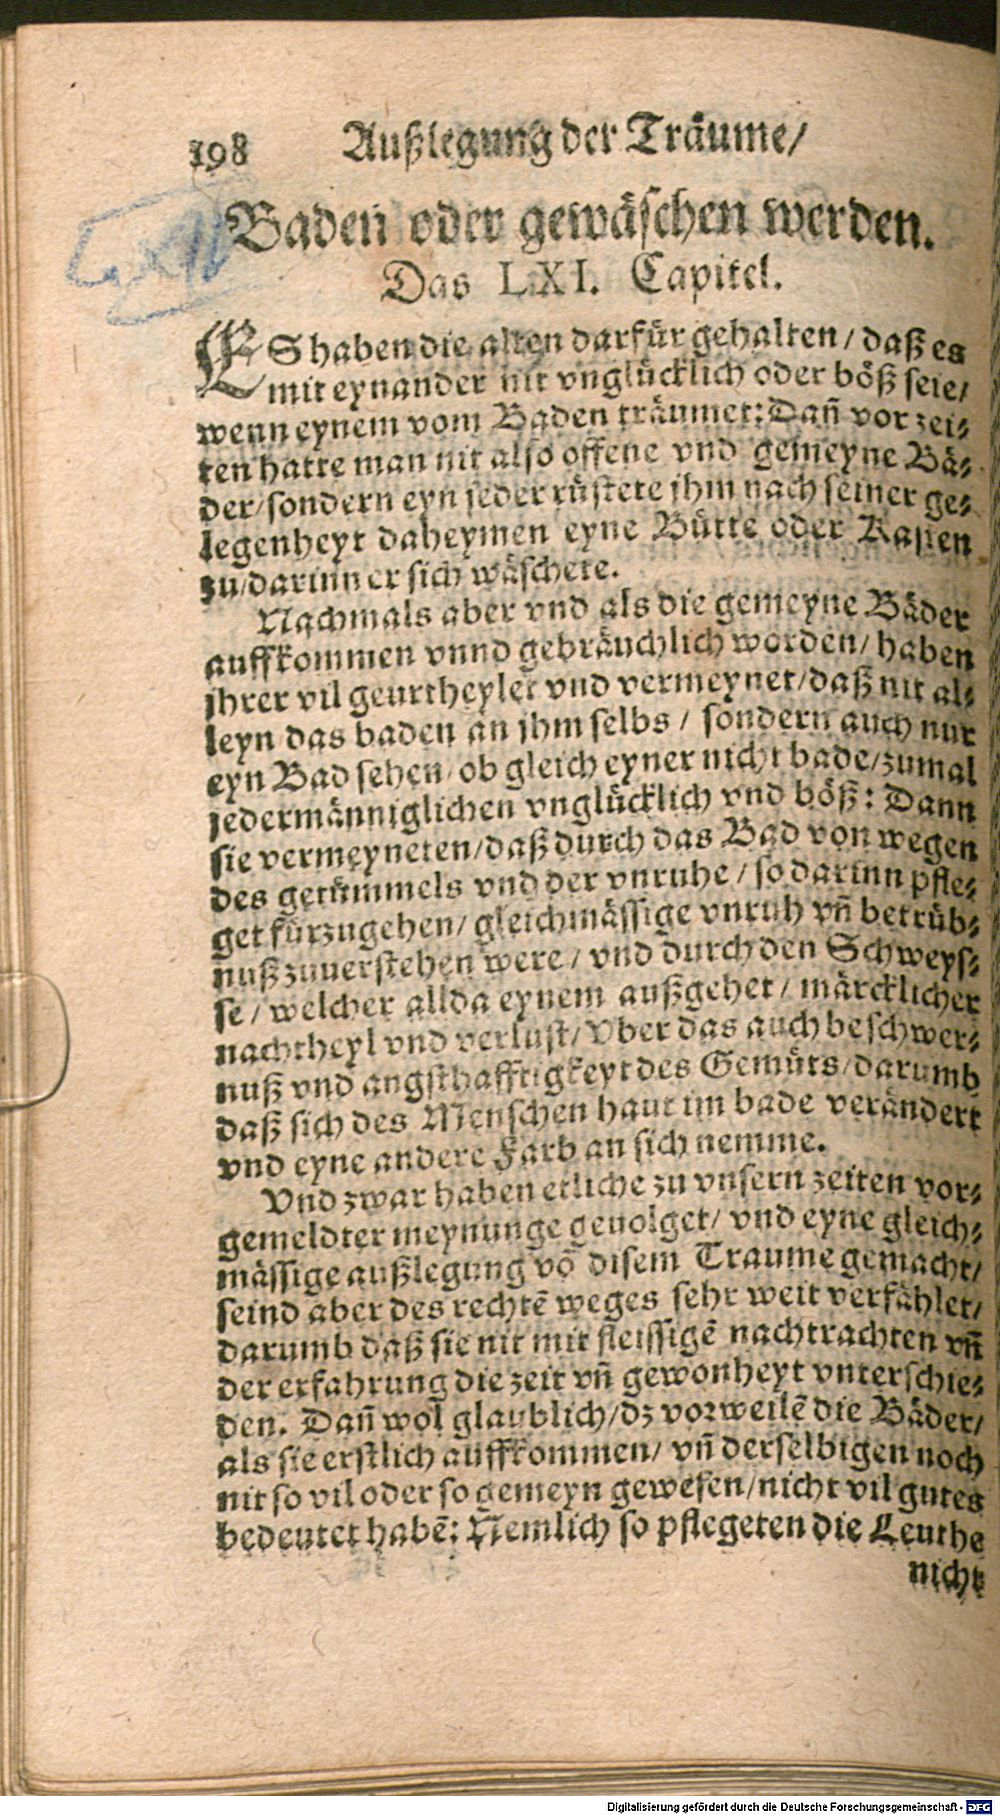 198 Außlegung der Träume/
Baden oder gewäschen werden.
Das LXI. Capitel.
ES haben die alten darfür gehalten/ daß es
mit eynander nit vnglücklich oder böß seie/
wenn eynem vom Baden träumet: Dañ vor zei-
ten hatte man nit also offene vnd gemeyne Bä-
der/sondern eyn jeder rüstete jhm nach seiner ge-
legenheyt daheymen eyne Bütte oder Kasten
zu/darinn er sich wäschete.
Nachmals aber vnd als die gemeyne Bäder
auffkommen vnnd gebräuchlich worden/ haben
jhrer vil geurtheylet vnd vermeynet/daß nit al-
leyn das baden an jhm selbs / sondern auch nur
eyn Bad sehen/ ob gleich eyner nicht bade/zumal
jedermänniglichen vnglücklich vnd böß: Dann
sie vermeyneten/daß durch das Bad von wegen
des getümmels vnd der vnruhe / so darinn pfle-
get fürzugehen/ gleichmässige vnruh vñ betrüb-
nuß zuuerstehen were / vnd durch den Schweys-
se / welcher allda eynem außgehet / märcklicher
nachtheyl vnd verlust/ Vber das auch beschwer-
nuß vnd angsthafftigkeyt des Gemüts/darumb
daß sich des Menschen haut im bade verändert
vnd eyne andere Farb an sich nemme.
Vnd zwar haben etliche zu vnsern zeiten vor-
gemeldter meynunge geuolget/ vnd eyne gleich-
mässige außlegung võ disem Traume gemacht/
seind aber des rechtẽ weges sehr weit verfählet/
darumb daß sie nit mit fleissigẽ nachtrachten vñ
der erfahrung die zeit vñ gewonheyt vnterschie-
den. Dañ wol glaublich/dz vorweilẽ die Bäder/
als sie erstlich auffkommen/ vñ derselbigen noch
nit so vil oder so gemeyn gewesen/nicht vil gutes
bedeutet habẽ: Nemlich so pflegeten die Leuthe
nicht
Digitalisierung gefördert durch die Deutsche Forschungsgemeinschaft - DFG